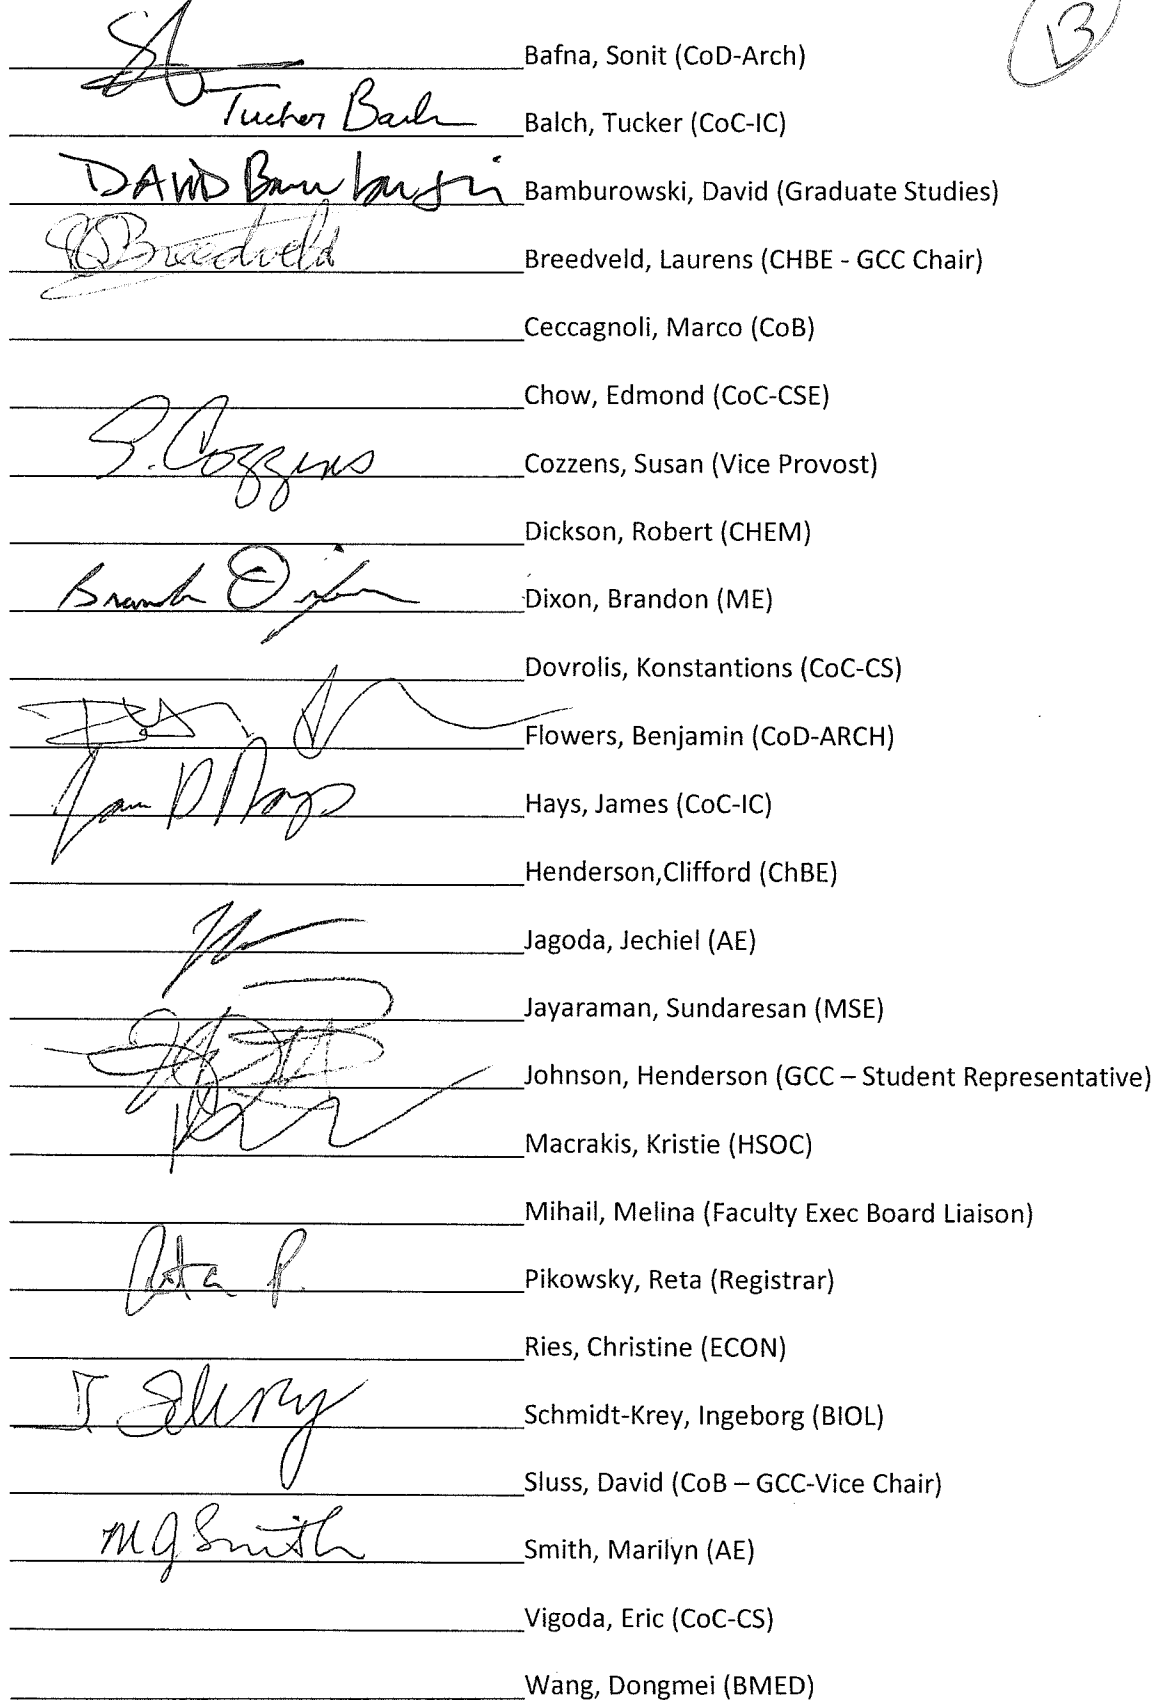 13
Bafna, Sonit (CoD-Arch)
Tucker Balch Balch, Tucker (CoC-IC)
DAVID Bamburowski Bamburowski, David (Graduate Studies)
Breedveld Breedveld, Laurens (CHBE - GCC Chair)
Ceccagnoli, Marco (CoB)
Chow, Edmond (CoC-CSE)
S. Cozzens Cozzens, Susan (Vice Provost)
Dickson, Robert (CHEM)
Brandon Dixon Dixon, Brandon (ME)
Dovrolis, Konstantions (CoC-CS)
Flowers, Benjamin (CoD-ARCH)
James Hays Hays, James (CoC-IC)
Henderson,Clifford (ChBE)
Jagoda, Jechiel (AE)
Jayaraman, Sundaresan (MSE)
Johnson, Henderson (GCC – Student Representative)
Macrakis, Kristie (HSOC)
Mihail, Melina (Faculty Exec Board Liaison)
Reta P. Pikowsky, Reta (Registrar)
Ries, Christine (ECON)
Schmidt-Krey, Ingeborg (BIOL)
Sluss, David (CoB – GCC-Vice Chair)
MJ Smith Smith, Marilyn (AE)
Vigoda, Eric (CoC-CS)
Wang, Dongmei (BMED)